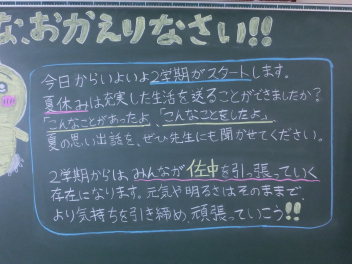 な、おかえりなさい!!
今日からいよいよ2学期がスタートします。
夏休みは充実した生活を送ることができましたか?
「こんなことがあったよ」、「こんなことをしたよ」
夏の思い出話を、ぜひ先生にも聞かせてください。
2学期からは、みんなが佐中を引っ張っていく
存在になります。元気や明るさはそのままで、
より気持ちを引き締め、頑張っていこう!!